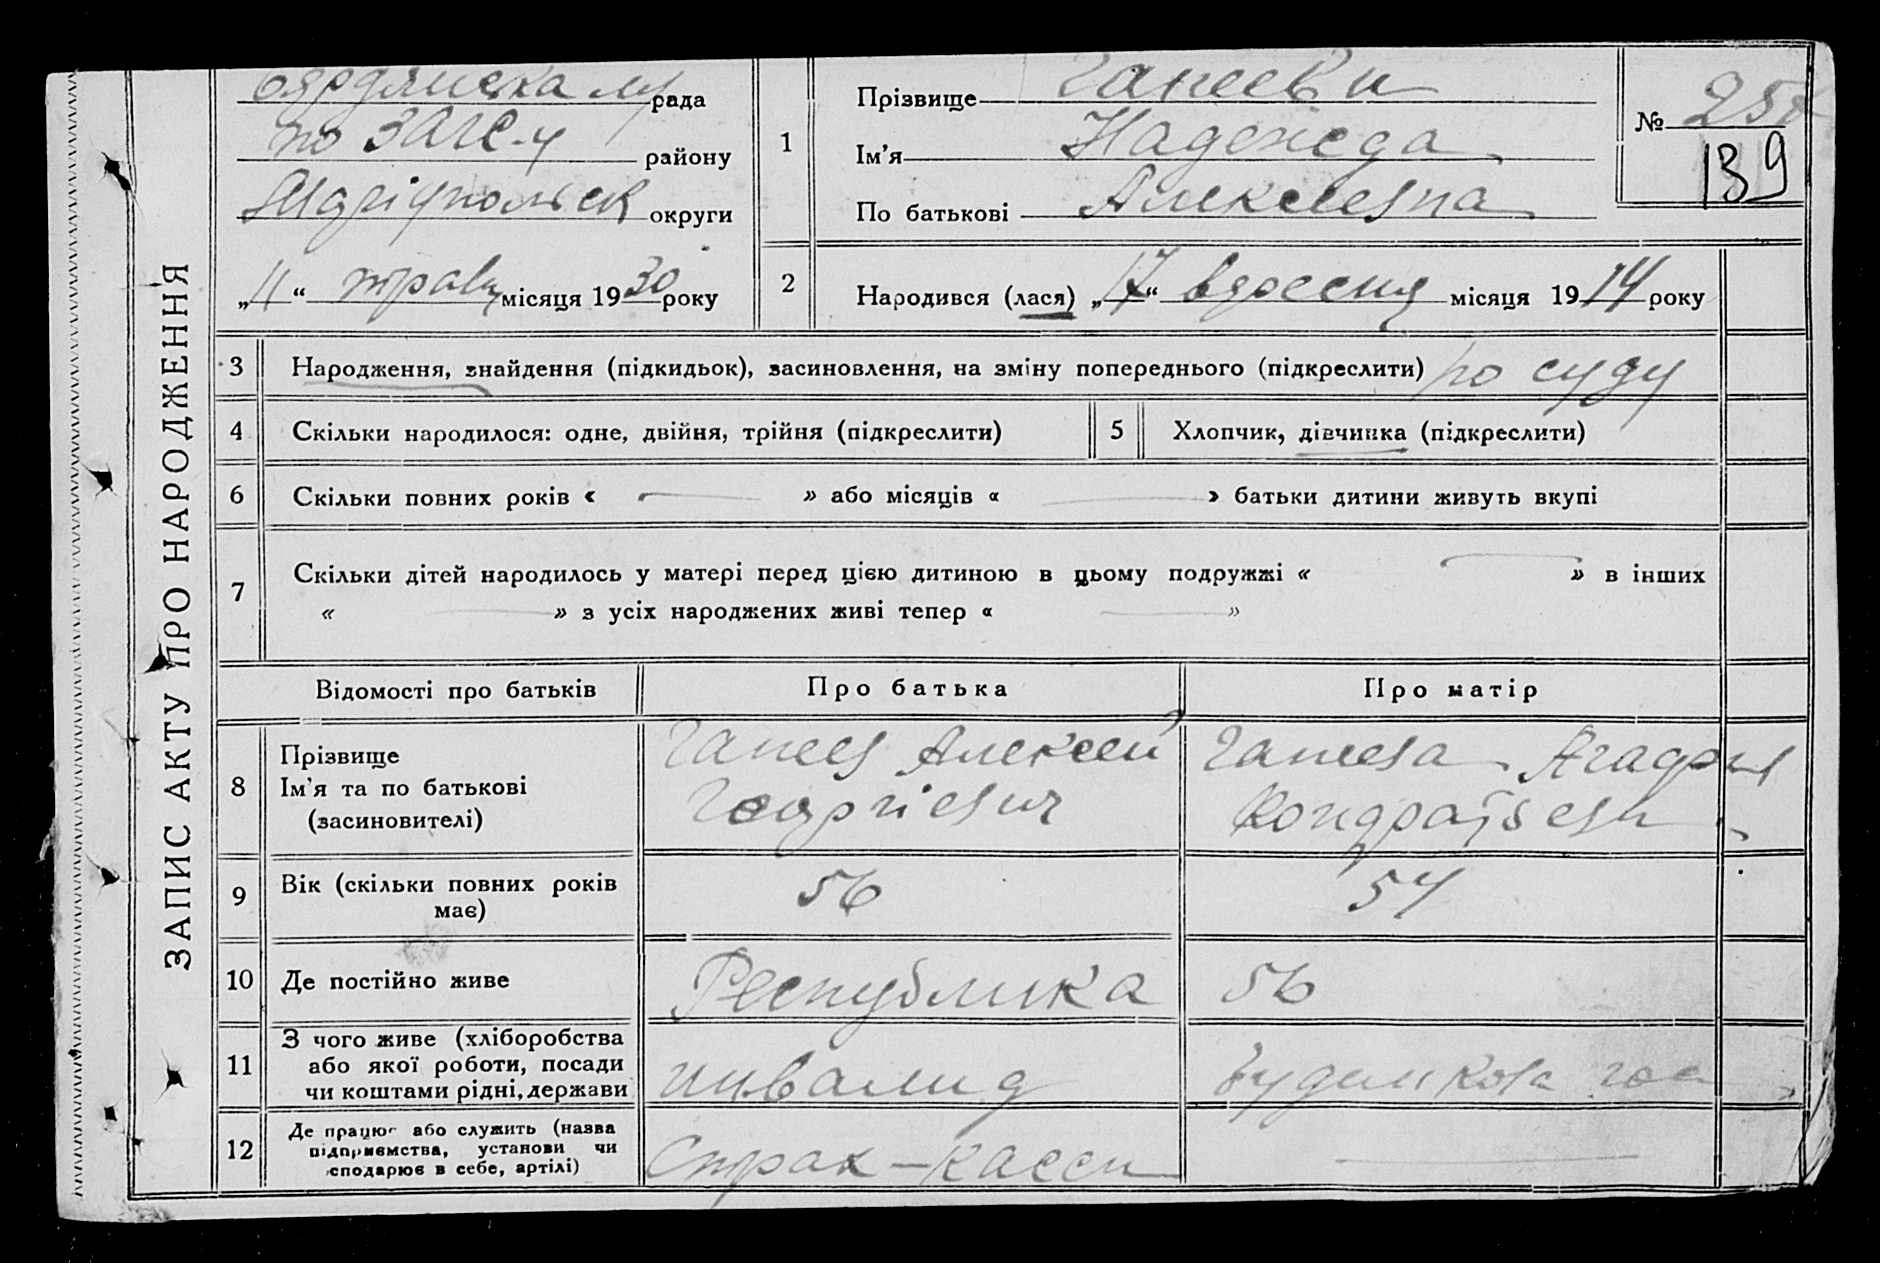 ЗАПИС АКТУ ПРО НАРОДЖЕННЯ
рада
по ЗАГС-у району
округи
„11“ трав місяця 1930 року
1
Прізвище
Ім'я Надежда
По батькові Алексеевна
№ 139
2
Народився (лася) „17“ вересня місяця 1914 року
3 Народження, знайдення (підкидьок), засиновлення, на зміну попереднього (підкреслити) по суду
4 Скільки народилося: одне, двійня, трійня (підкреслити)
5 Хлопчик, дівчинка (підкреслити)
6 Скільки повних років « » або місяців « » батьки дитини живуть вкупі
7 Скільки дітей народилось у матері перед цією дитиною в цьому подружжі « » в інших
« » з усіх народжених живі тепер « »
Відомості про батьків
Про батька
Про матір
8
Прізвище
Ім'я та по батькові
(засиновителі)
Ганеев Алексей
Георгіевич
Ганеева
9
Вік (скільки повних років
має)
56
54
10 Де постійно живе
Республика
56
11
З чого живе (хліборобства
або якої роботи, посади
чи коштами рідні, держави
инвалид
12
Де працює або служить (назва
підприємства, установи чи
сподарює в себе, артілі)
Страх-касси